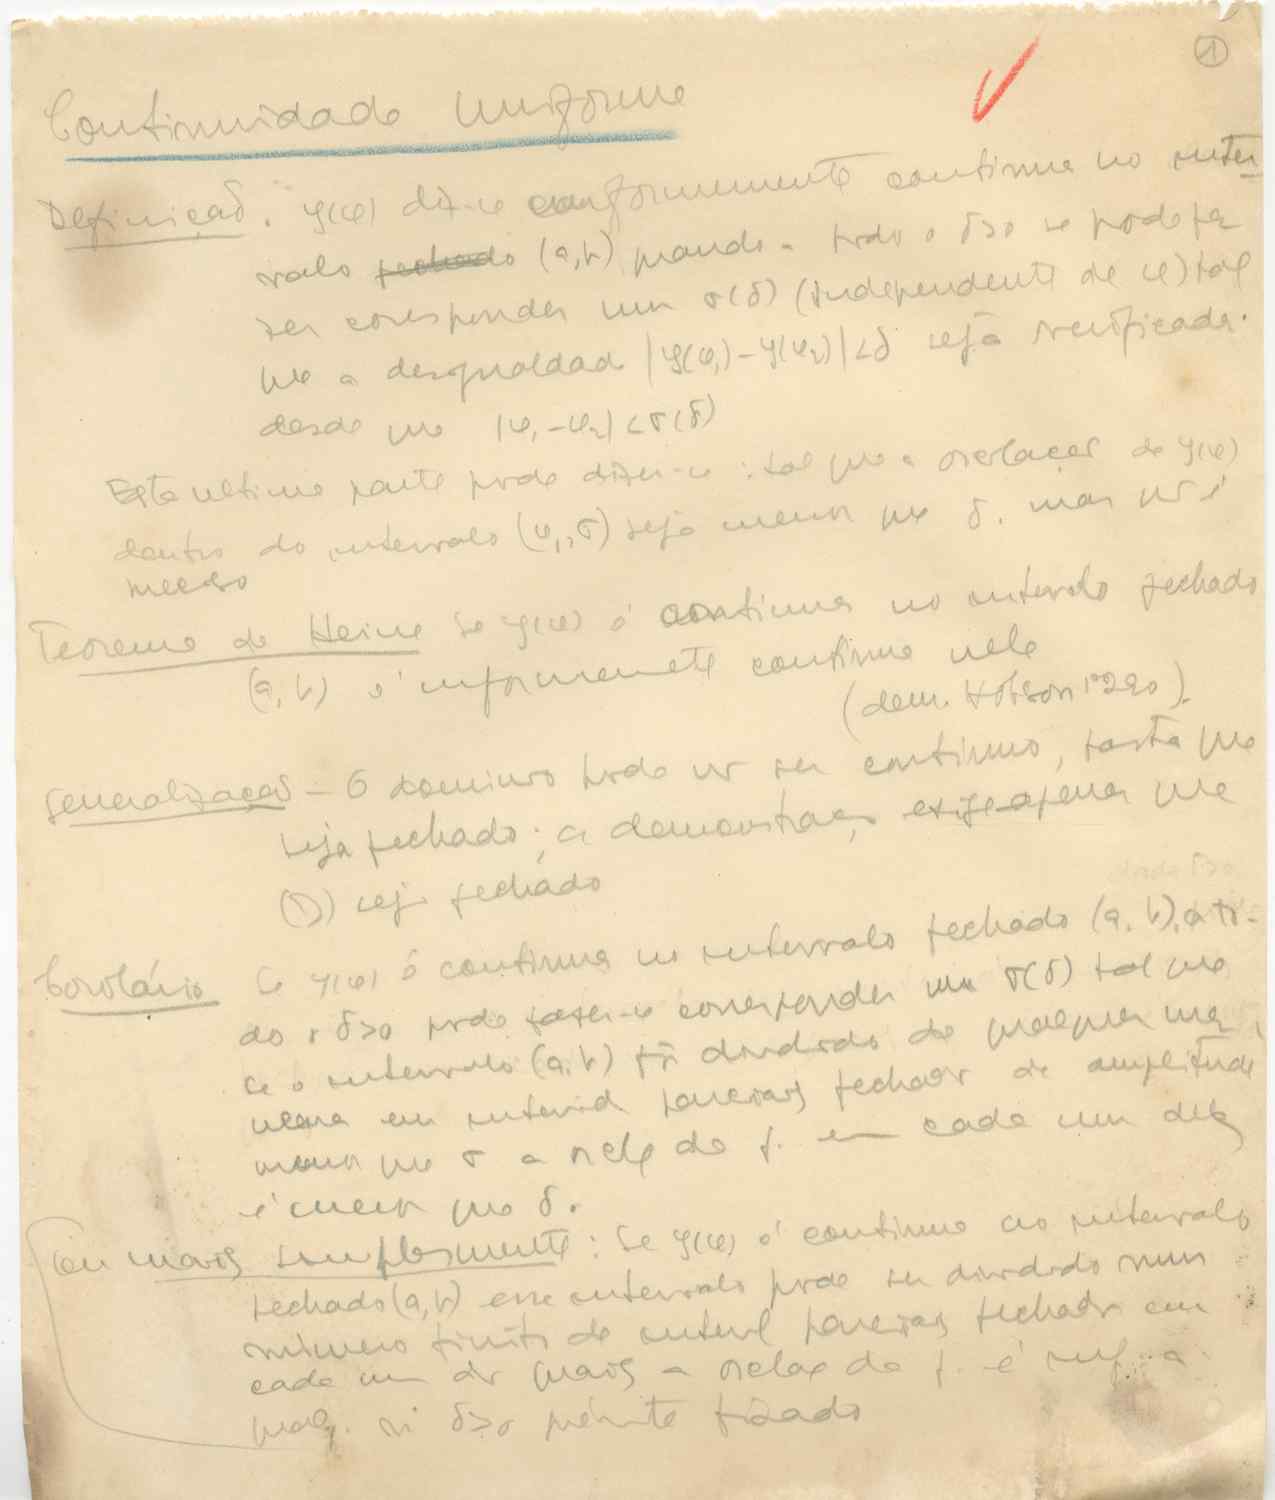 1
Continuidade uniforme
Definição. y(φ) diz-se uniformemente continua no inter
valo fechado (a,b) quando a todo o δ>0 se pode fa
zer corresponder um σ(δ) (independente de φ) tal
que a desigualdade |y(φ₁)-y(φ₂)|<δ seja verificada
desde que |φ₁-φ₂|<σ(δ)
Esta ultima parte pode dizer-se: tal que a oscilação de y(φ)
dentro do intervalo (φ₁,σ) seja menor que δ. mas
Teorema de Heine Se y(φ) é continua no intervalo fechado
(a,b) é uniformemente continua nele
(dem. Hobson 290).
Generalização - O dominio pode não ser continuo, basta que
seja fechado; a demonstração exige apenas que
(D) seja fechado
Corolário Se y(φ) é continua no intervalo fechado (a,b), a to-
do o δ>0 pode fazer-se corresponder um σ(δ) tal que
se o intervalo (a,b) fôr dividido de qualquer ma
neira em interval parciais fechados de amplitude
menor que σ a oscilç da f. em cada um deles
é menor que δ.
Ou mais simplesmente: Se y(φ) é continua no intervalo
fechado (a,b) esse intervalo pode ser dividido num
número finito de interval parciais fechados em
cada um dos quais a oscilaç da f. é inf. a
qualq. nº δ>0 préviamente fixado